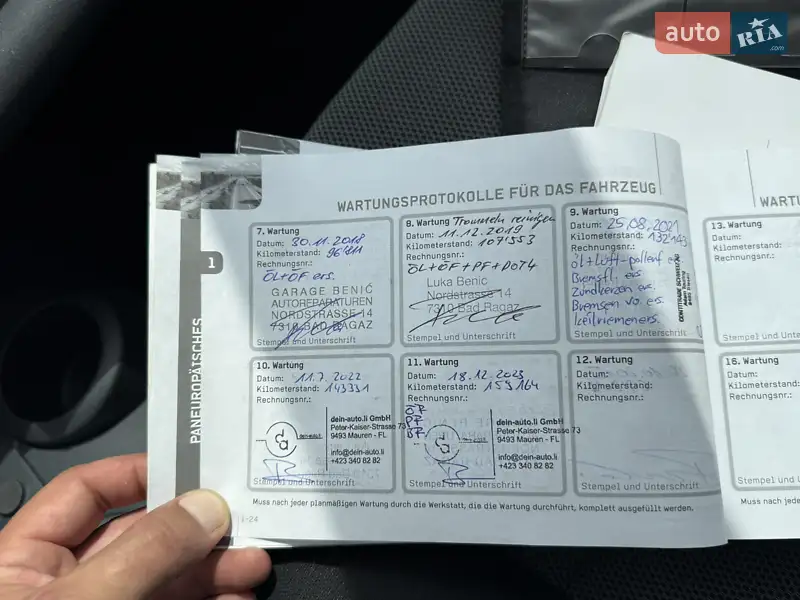 auto RIA .com
WARTUNGSPROTOKOLLE FÜR DAS FAHRZEUG
WARTU
1
PANEUROPÄTSCHES
7. Wartung
Datum: 30.11.2018
Kilometerstand:
Rechnungsnr.:
ÖL+ÖF ers.
GARAGE BENIĆ
AUTOREPARATUREN
NORDSTRASSE 14
7310 BAD RAGAZ
Stempel und Unterschrift
8. Wartung Trommeln reinigen
Datum: 11.12.2019
Kilometerstand: 107353
Rechnungsnr.:
ÖL+ÖF+PF+DOT4
Luka Benic
Nordstrasse 14
7310 Bad Ragaz
Stempel und Unterschrift
9. Wartung
Datum: 25.08.2021
Kilometerstand: 132143
Rechnungsnr.:
öl+Luft-pollenf
Bremsfl. ers
Zündkerzen er.
Bremsen vo. es.
keilriemen ers.
Stempel und Unterschrift
13. Wartung
Datum:
Kilometerstand:
Rechnungsnr.:
Stempel un
10. Wartung
Datum: 11.7.2022
Kilometerstand: 143331
Rechnungsnr.:
dein-auto.li GmbH
Peter-Kaiser-Strasse 73
9493 Mauren - FL
info@dein-auto.li
+423 340 82 82
Stempel und Unterschrift
11. Wartung
Datum: 18.12.2023
Kilometerstand: 159164
Rechnungsnr.:
ÖF
PF
dein-auto.li GmbH
Peter-Kaiser-Strasse 73
9493 Mauren - FL
info@dein-auto.li
+423 340 82 82
Stempel und Unterschrift
12. Wartung
Datum:
Kilometerstand:
Rechnungsnr.:
Stempel und Unterschrift
16. Wartung
Datum:
Kilometerstand:
Rechnungsnr.:
Stempel und
Muss nach jeder planmäßigen Wartung durch die Werkstatt, die die Wartung durchführt, komplett ausgefüllt werden.
Muss nach jede
1-24